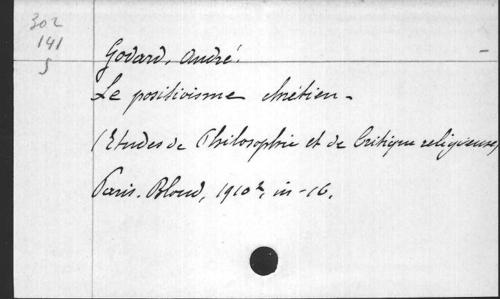 302
141
5
Godard, André.
Le positivisme chrétien -
(Etudes de Philosophie et de Critique religieuse)
Paris. Bloud, 1910, in-16.